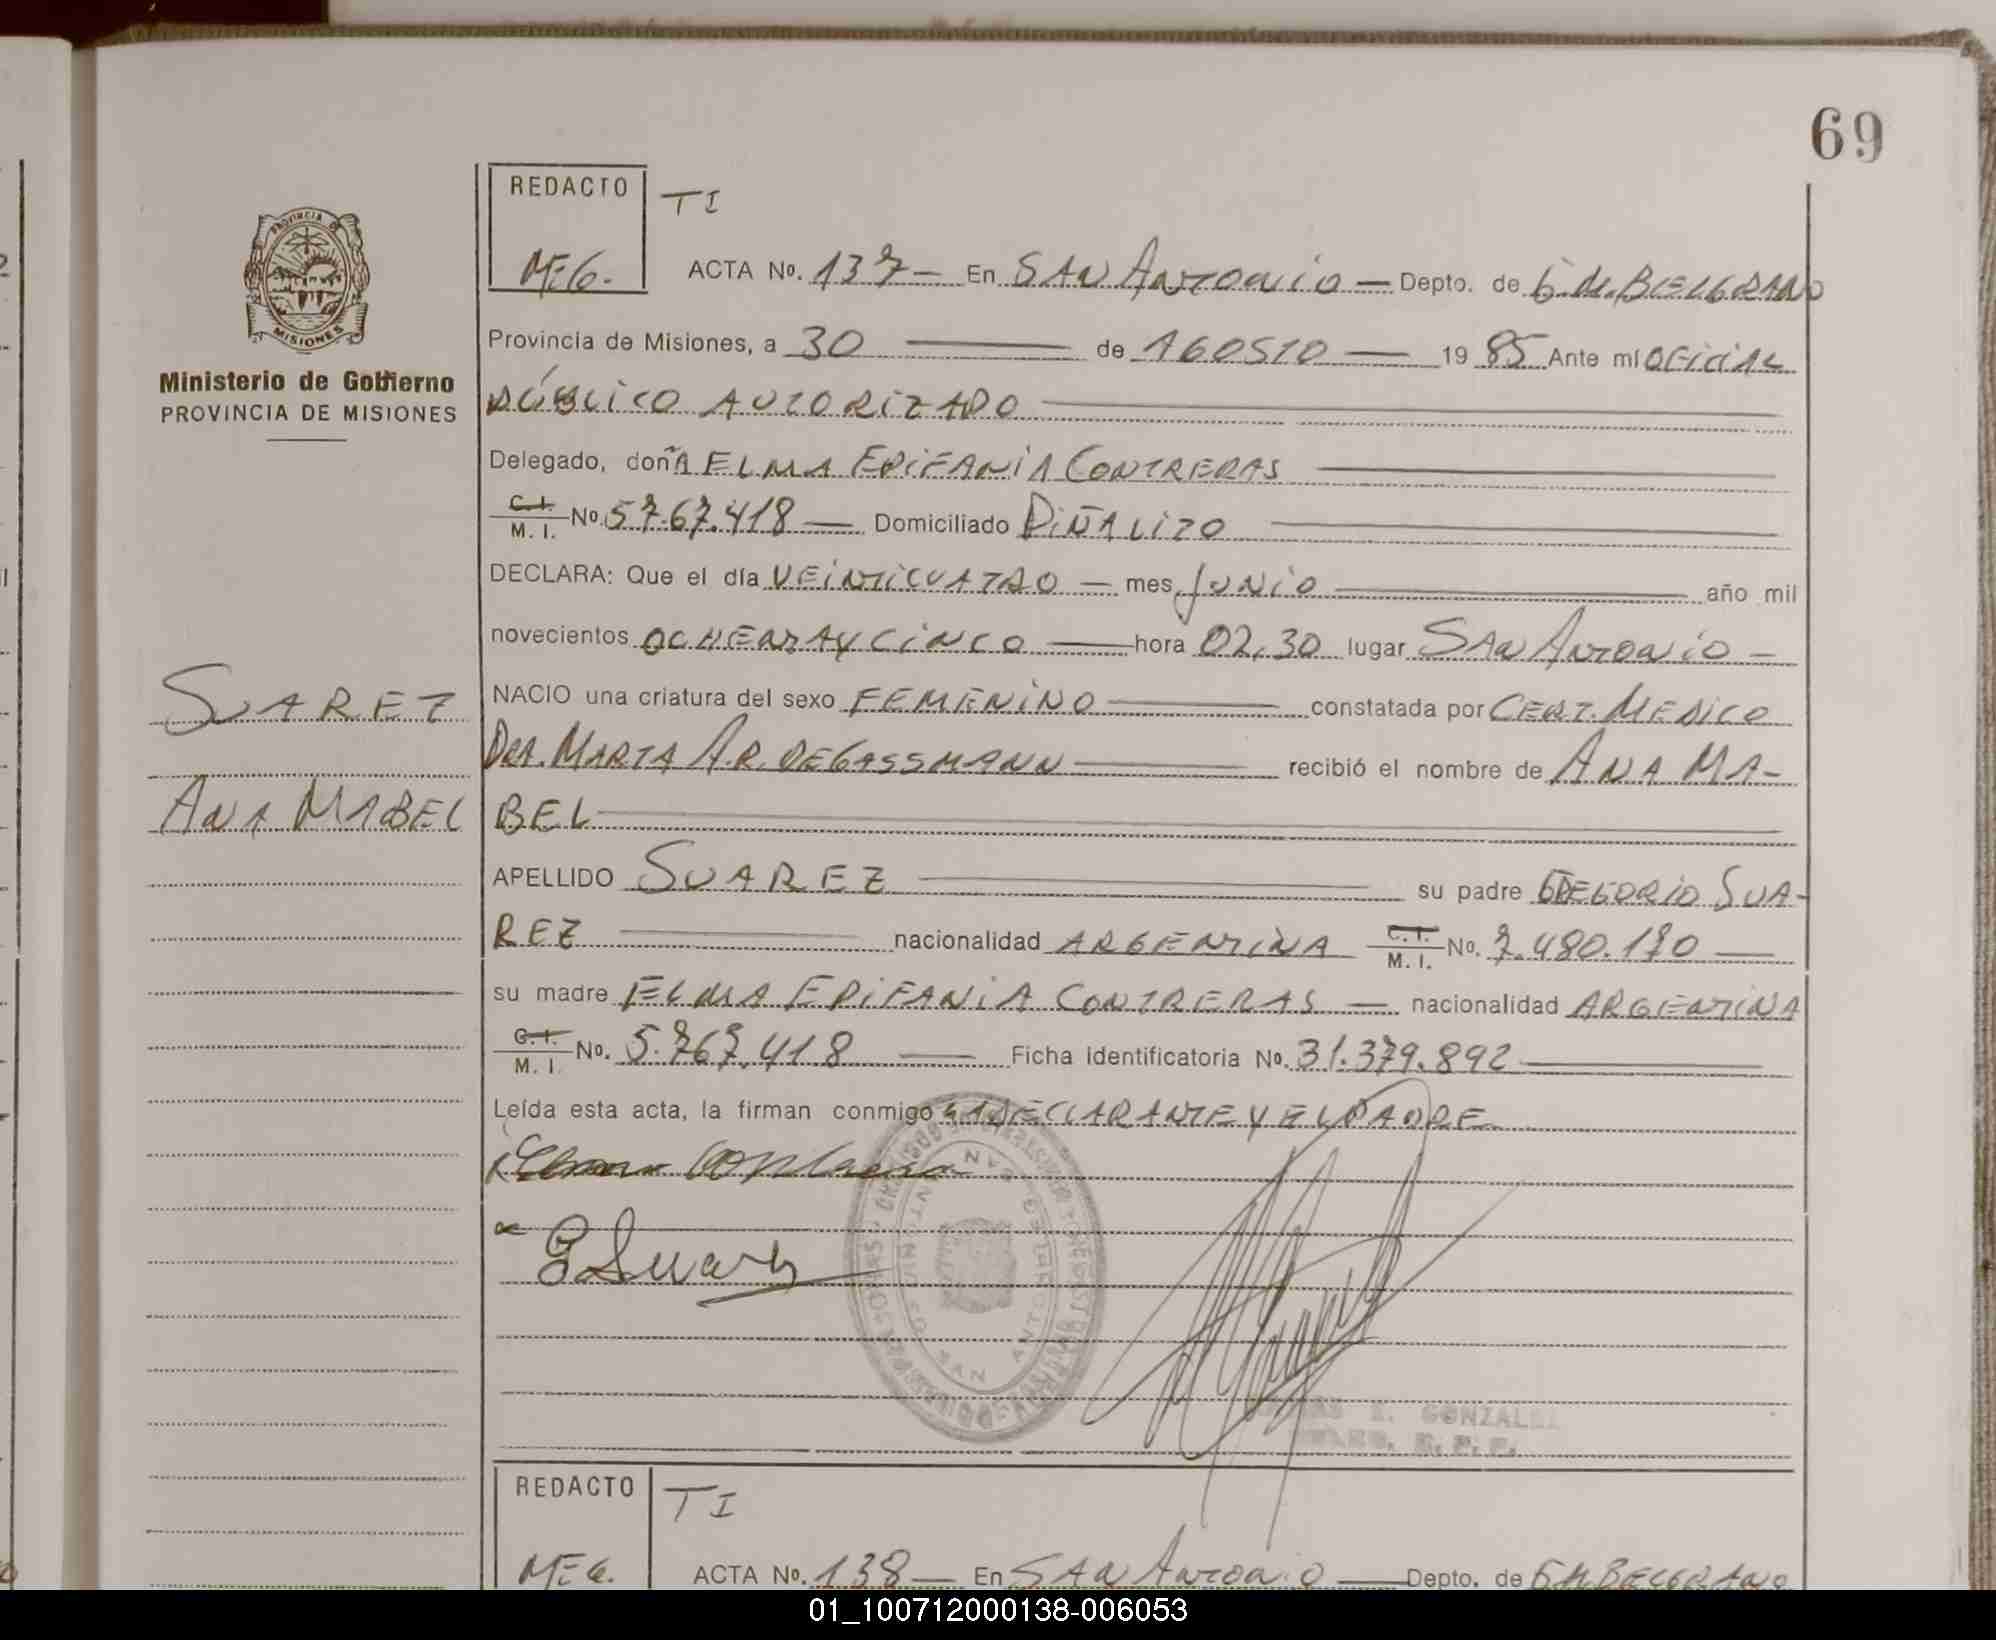 69
REDACTO
TI
M.E.G.
ACTA No. 137 — En SAN ANTONIO — Depto. de G. M. BELGRANO
PROVINCIA DE
MISIONES
Ministerio de Gobierno
PROVINCIA DE MISIONES
Provincia de Misiones, a 30 — de AGOSTO — 1985 Ante mí OFICIAL
PÚBLICO AUTORIZADO
Delegado, doñA ELMA EPIFANIA CONTRERAS
C.I. / M. I. No. 5.767.418 — Domiciliado PIÑALITO
DECLARA: Que el día VEINTICUATRO — mes JUNIO — año mil
novecientos OCHENTA Y CINCO — hora 02,30 lugar SAN ANTONIO —
NACIO una criatura del sexo FEMENINO — constatada por CERT. MEDICO
DRA. MARTA A.R. DE GASSMANN — recibió el nombre de ANA MA-
BEL
SUAREZ
ANA MABEL
APELLIDO SUAREZ — su padre GREGORIO SUA-
REZ — nacionalidad ARGENTINA C.I. / M. I. No. 7.480.170 —
su madre ELMA EPIFANIA CONTRERAS — nacionalidad ARGENTINA
C.I. / M. I. No. 5.767.418 — Ficha Identificatoria No. 31.379.892
Leída esta acta, la firman conmigo LA DECLARANTE Y EL PADRE
Elma Contrera
G Suarez
SAN ANTONIO
GONZALEZ
REDACTO
TI
M.E.G.
ACTA No. 138 — En SAN ANTONIO — Depto. de G. M. BELGRANO
01_100712000138-006053